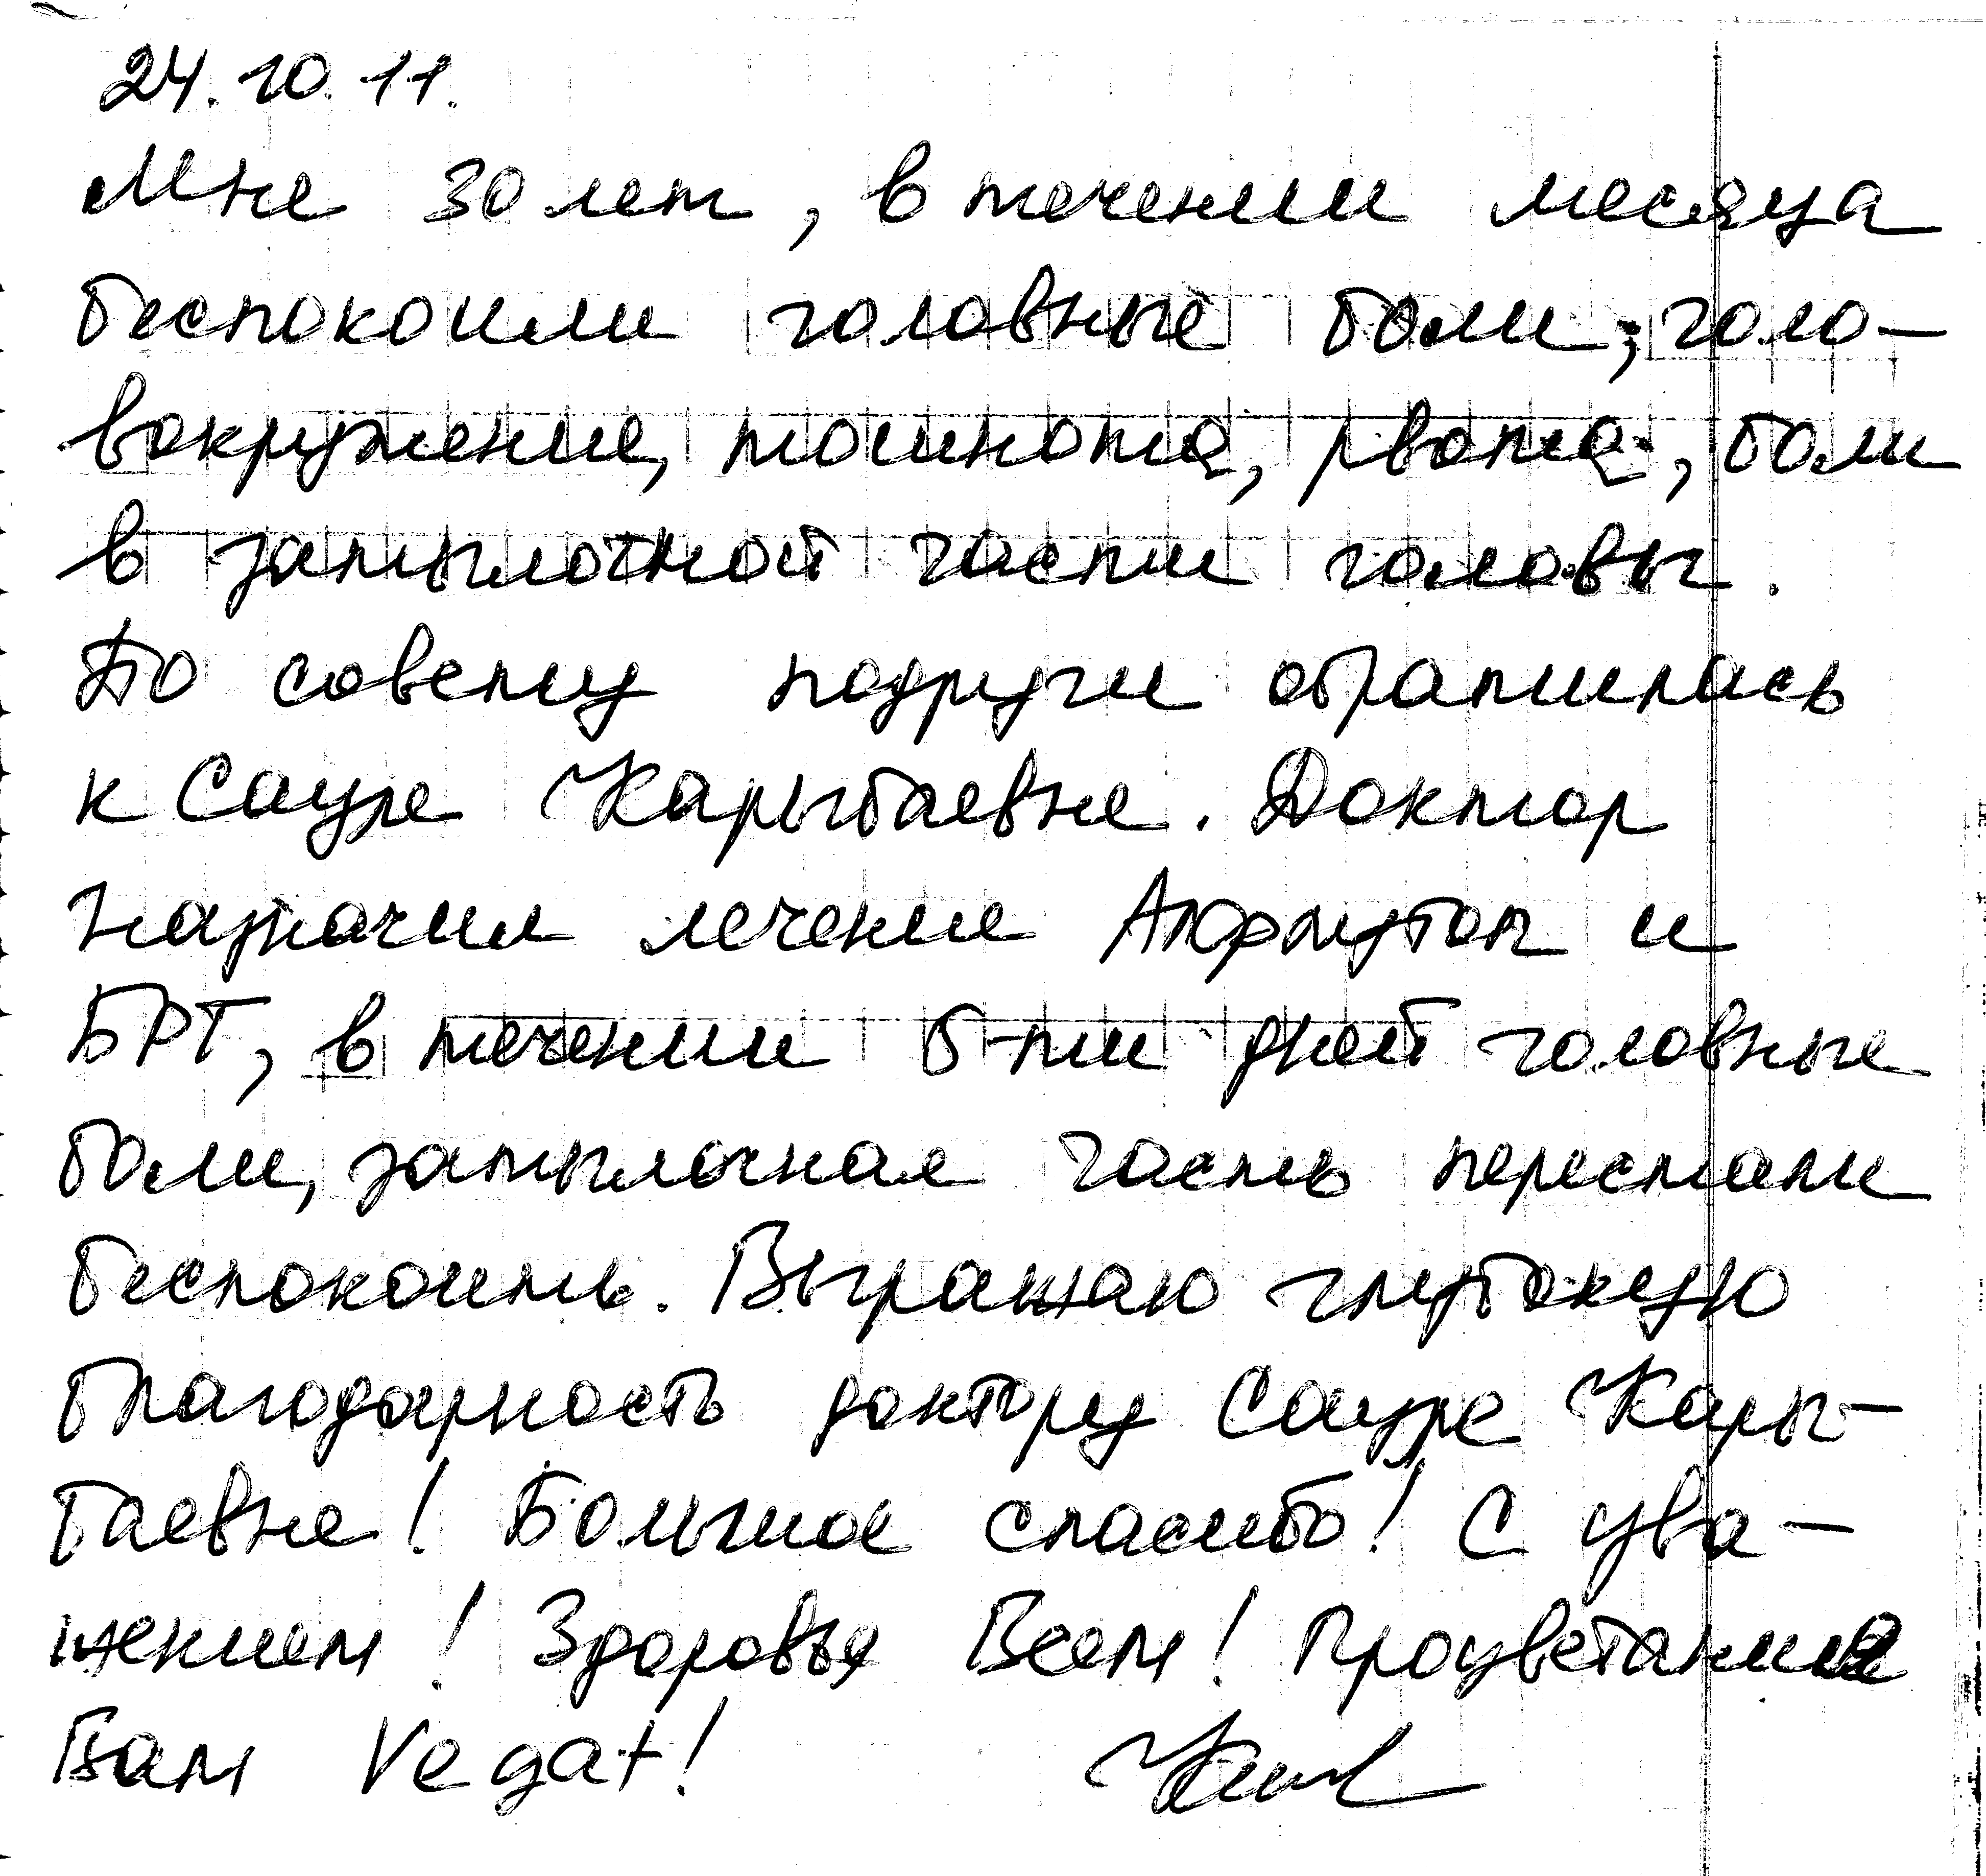 24.10.11.
Мне 30 лет, в течении месяца
беспокоили головные боли, голо-
вокружение, тошнота, рвота, боли
в затылочной части головы.
По совету подруги обратилась
к Сауле Карыбаевне. Доктор
назначил лечение и
БРТ, в течении 5-ти дней головные
боли, затылочная часть перестали
беспокоить. Выражаю глубокую
благодарность доктору Сауле Кары-
баевне! Большое спасибо! С ува-
жением! Здоровья Всем! Процветание
Вам Vega+!